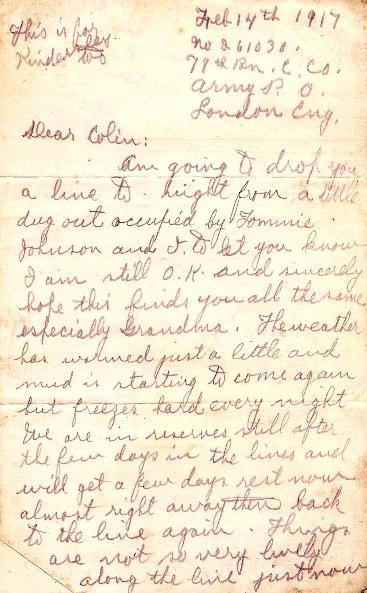 This is for
Kinder les
too
Feb. 14th 1917
No 261030.
78th Bn. C. Co.
Army P. O.
London Eng.
Dear Colin:
Am going to drop you
a line to-night from a little
dug out occupied by Tommie
Johnson and I. to let you know
I am still O.K. and sincerely
hope this finds you all the same
especially Grandma. The weather
has warmed just a little and
mud is starting to come again
but freezes hard every night
We are in reserves still after
the few days in the lines and
will get a few days rest now
almost right away then back
to the line again. Things
are not so very lively
along the line just now